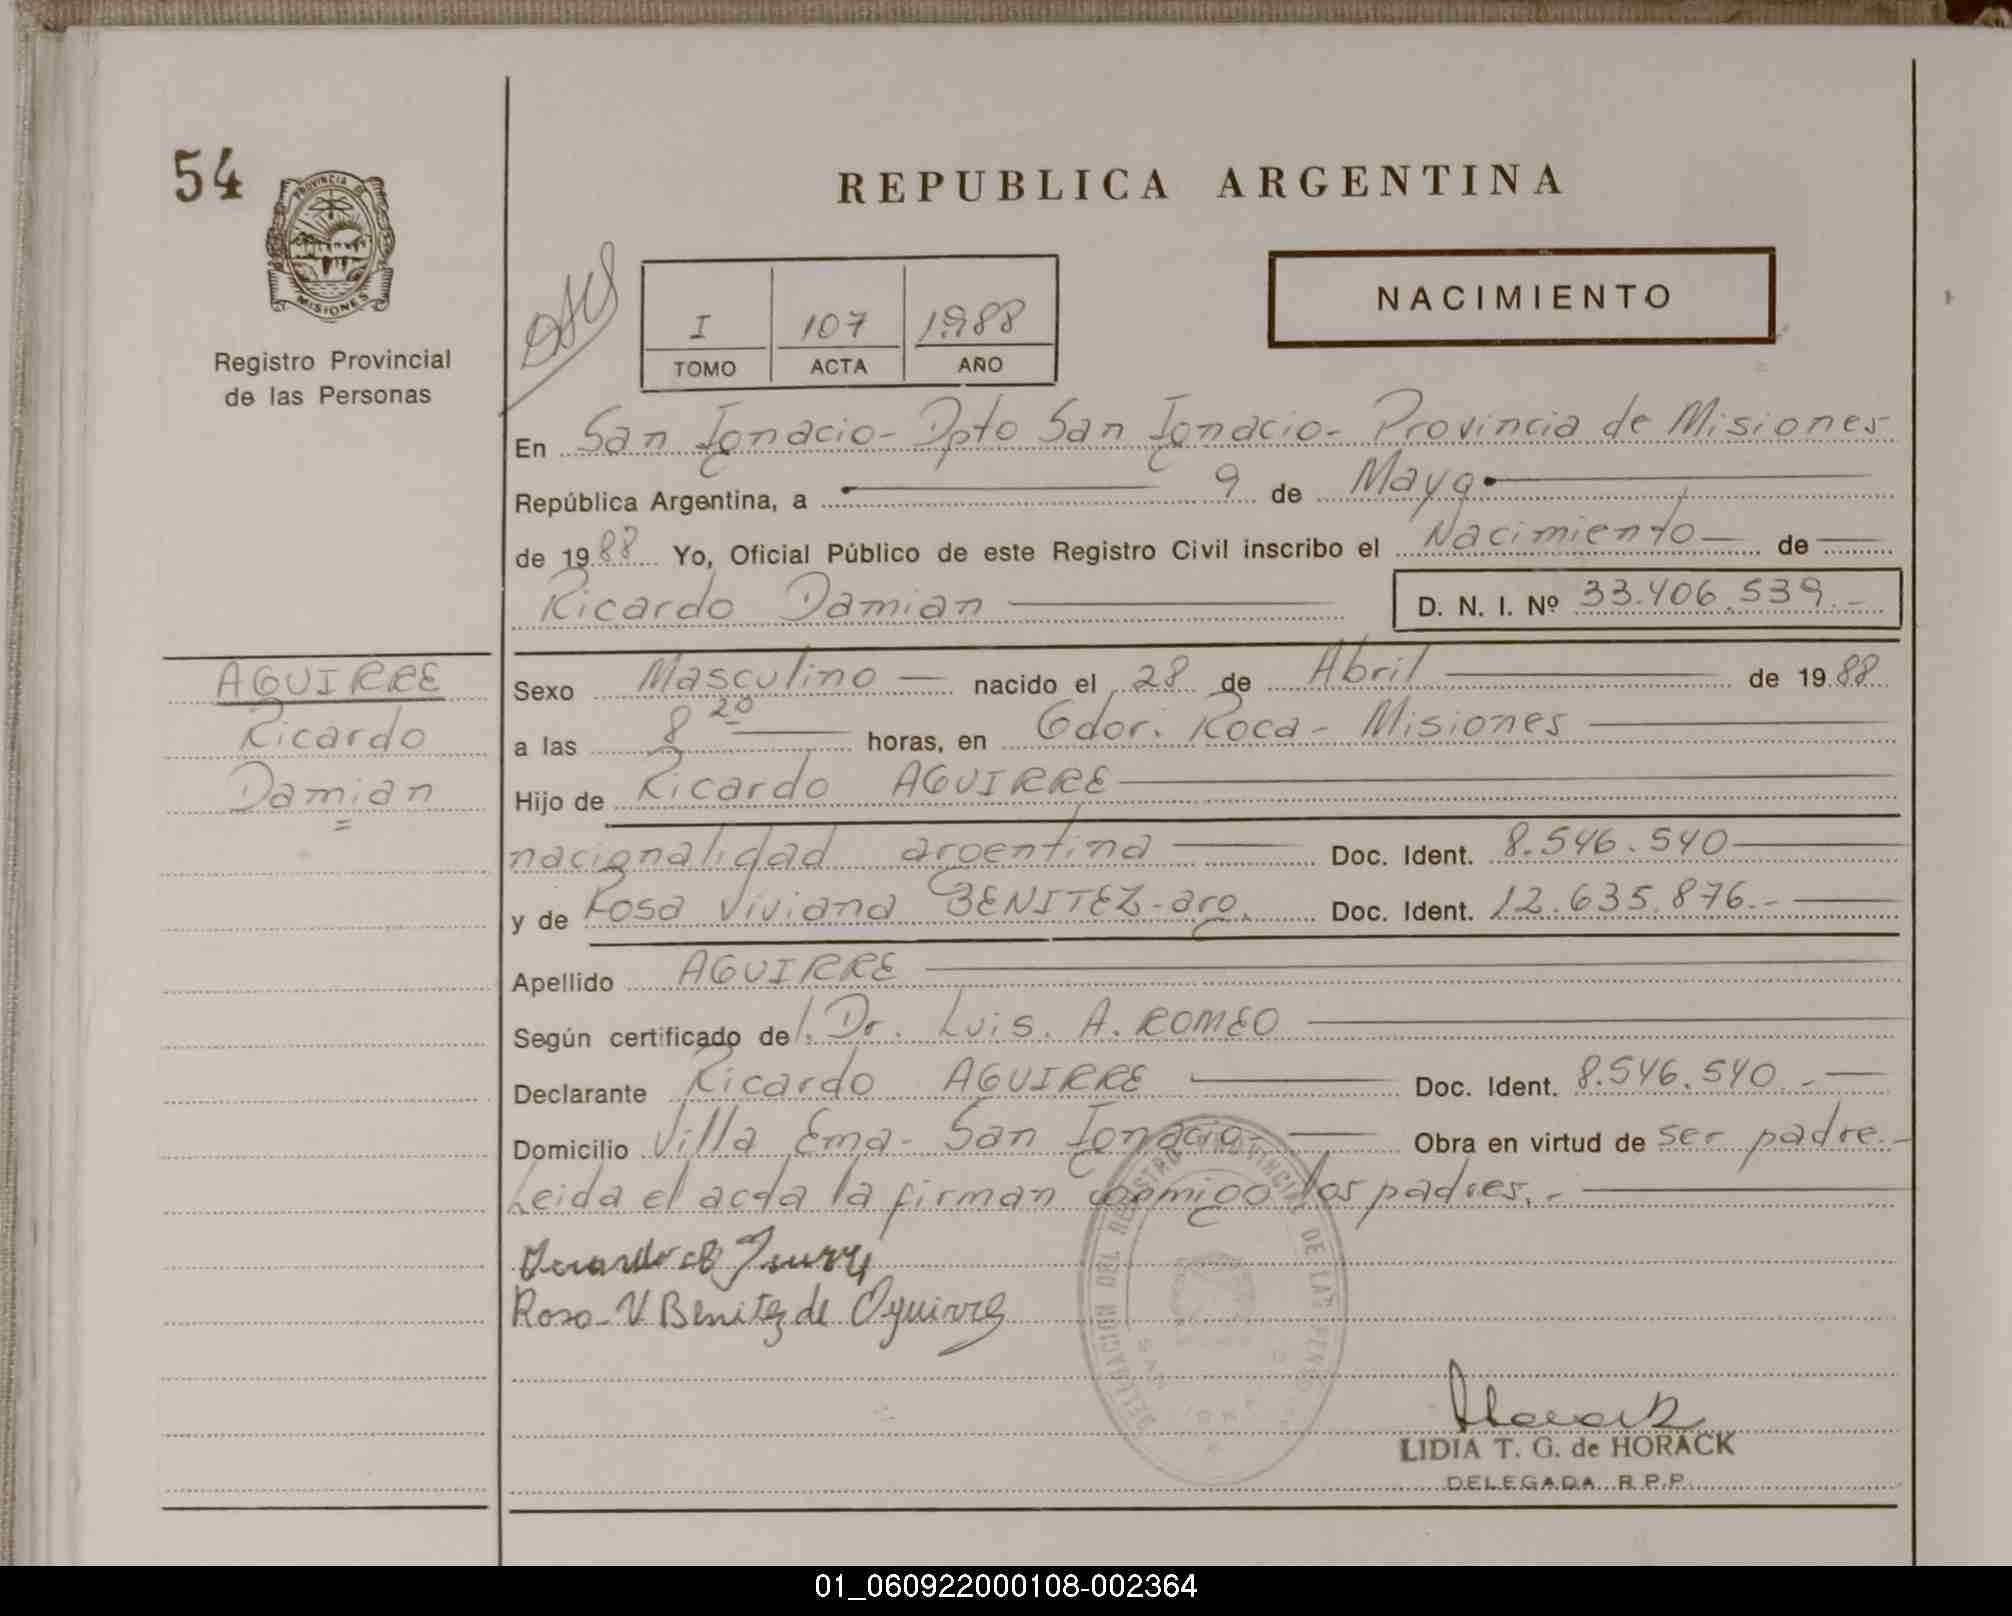 54
PROVINCIA DE
MISIONES
Registro Provincial
de las Personas
REPUBLICA ARGENTINA
I 107 1988
TOMO ACTA AÑO
NACIMIENTO
En San Ignacio - Dpto San Ignacio - Provincia de Misiones
República Argentina, a 9 de Mayo
de 1988 Yo, Oficial Público de este Registro Civil inscribo el Nacimiento de
Ricardo Damian D. N. I. Nº 33.406.539.-
AGUIRRE
Ricardo
Damian
Sexo Masculino nacido el 28 de Abril de 1988
a las 8 20 horas, en Gdor. Roca - Misiones
Hijo de Ricardo AGUIRRE
nacionalidad argentina Doc. Ident. 8.546.540
y de Rosa Viviana BENITEZ - arg. Doc. Ident. 12.635.876.-
Apellido AGUIRRE
Según certificado del. Dr. Luis. A. ROMEO
Declarante Ricardo AGUIRRE Doc. Ident. 8.546.540.-
Domicilio Villa Ema - San Ignacio - Obra en virtud de ser padre.-
Leida el acta la firman conmigo los padres.-
Rosa V Benitez de Aguirre
DELEGACION DEL REGISTRO PROVINCIAL DE LAS PERSONAS
Horack
LIDIA T. G. de HORACK
DELEGADA R.P.P.
01_060922000108-002364